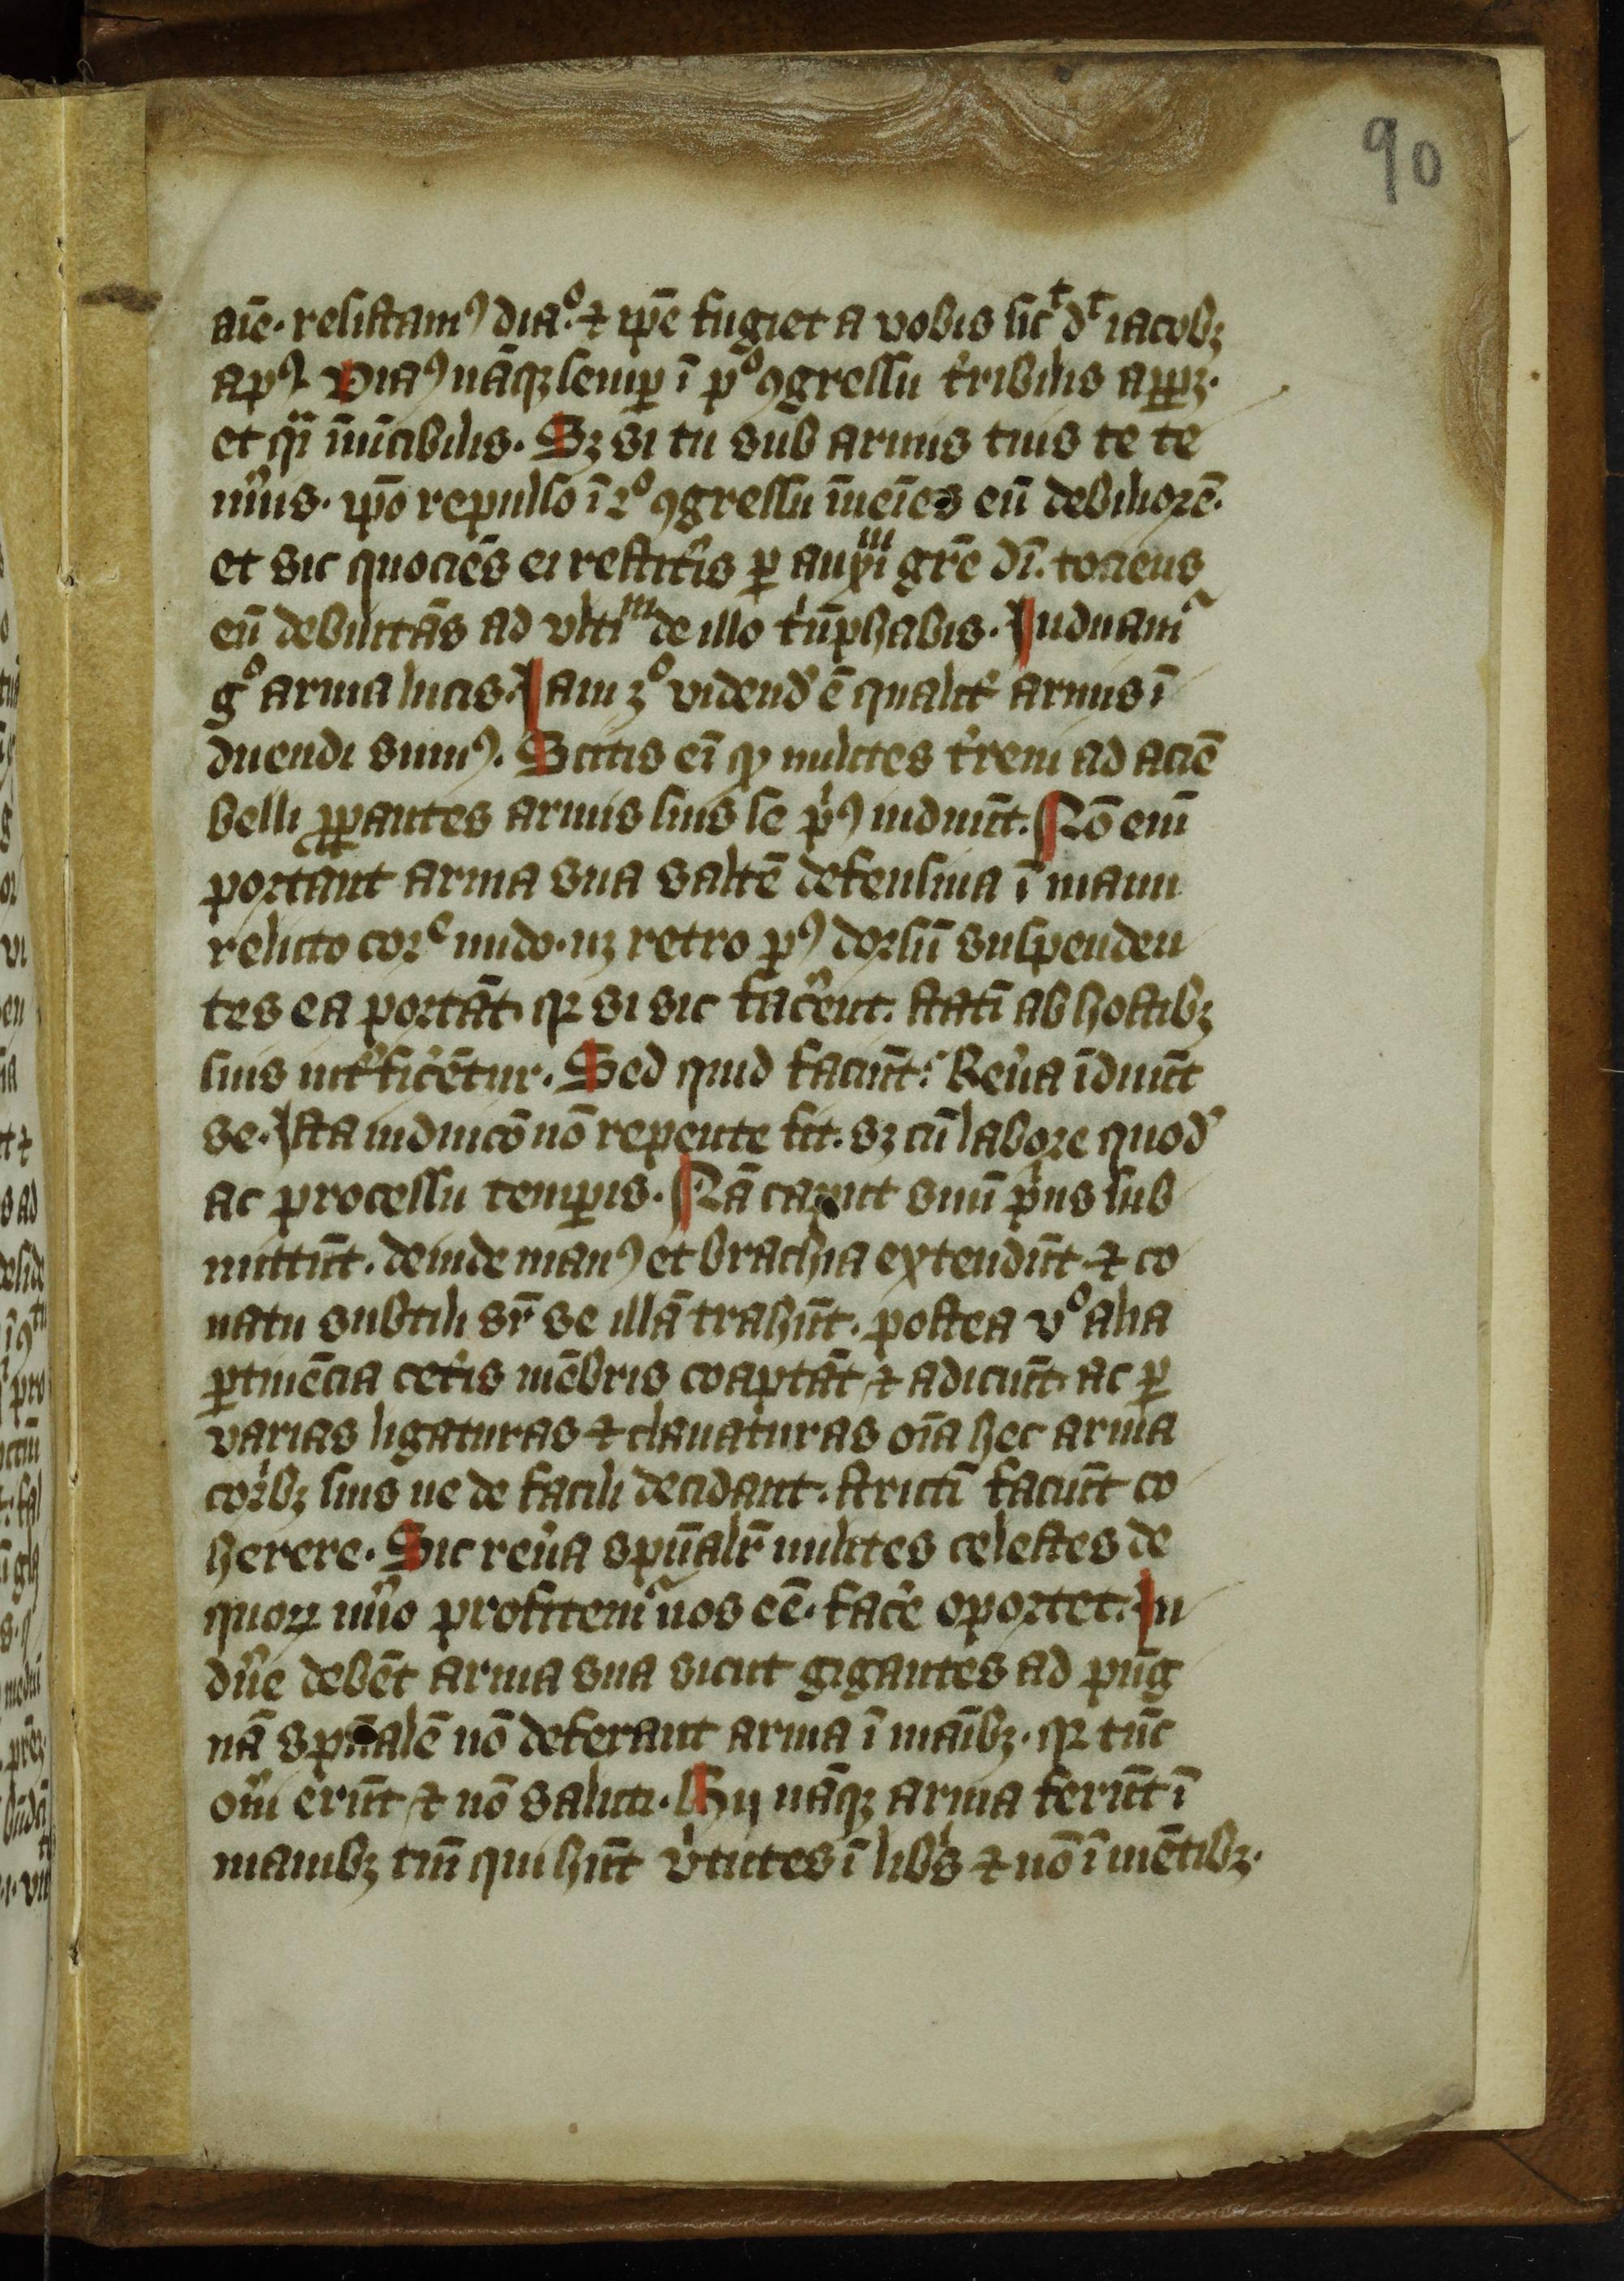 90
aīe. resistamꝰ diaº. ⁊ ip̄e fugiet a vobis sicᵗ dᵗ iacobꝫ
apꝰ. Diaꝰ nāqꝫ semꝑ ī pº ꝯgressu t̾ribilis apꝑꝫ.
et qͥ īūīcibilis. Sꝫ si tu sub armis tuis te te
nu̾is. ip̄o repulso ī 2º ꝯgressu īueīes eū debiliorē.
et sic quociēs ei restit̾is ꝑ auxiᵐ gr̄e dī. tociens
eū debilitās ad vltiᵐ de illo t̾ūphabis. Induamᷣ
gº arma lucis. Iam ꝫº vidend̾ ē qualit̾ armis ī
duendi sumꝰ. Scitis eī ꝙ milites t̾reni ad aciē
belli p̄ꝑantes armis suis se pͥꝰ induūt. Nō enī
portant arma sua saltē defensiua ī manu
relicto corᵉ nudo. nꝫ retro pꝰ dorsū suspenden
tes ea portāt. qꝛ si sic fac̾ent. statī ab hostibꝫ
suis int̾fic̾ētur. Sed quid faciūt: Reu̾a īduūt
se. Ista induicō nō repente fit. sꝫ cū labore quod̾
ac processu temꝑis. Nā caput suū pͥus sub
mittūt. deinde manꝰ et brachia extendūt ⁊ co
natu subtili sr̄ se illā trahūt. postea vº alia
ꝑtinēcia cet̾is mēbris coaptāt ⁊ adiciūt. ac ꝑ
varias ligaturas ⁊ clauaturas oīa hec arma
cor̾ibꝫ suis ne de facili decidant. strictī faciūt co
herere. Sic reu̾a spūalr̄ milites celestes de
quoꝝ nu̾o profitemᷣ nos eē. fac̾e oportet. In
du̾e debēt arma sua sicut gigantes ad pūg
nā spūalē nō deferant arma ī māibꝫ. qꝛ tūc
on̾i erūt ⁊ nō saluti. Hij nāqꝫ arma ferūt ī
manibꝫ tm̄ qui hn̄t v̾tutes ī libͥs ⁊ nō ī mētibꝫ.